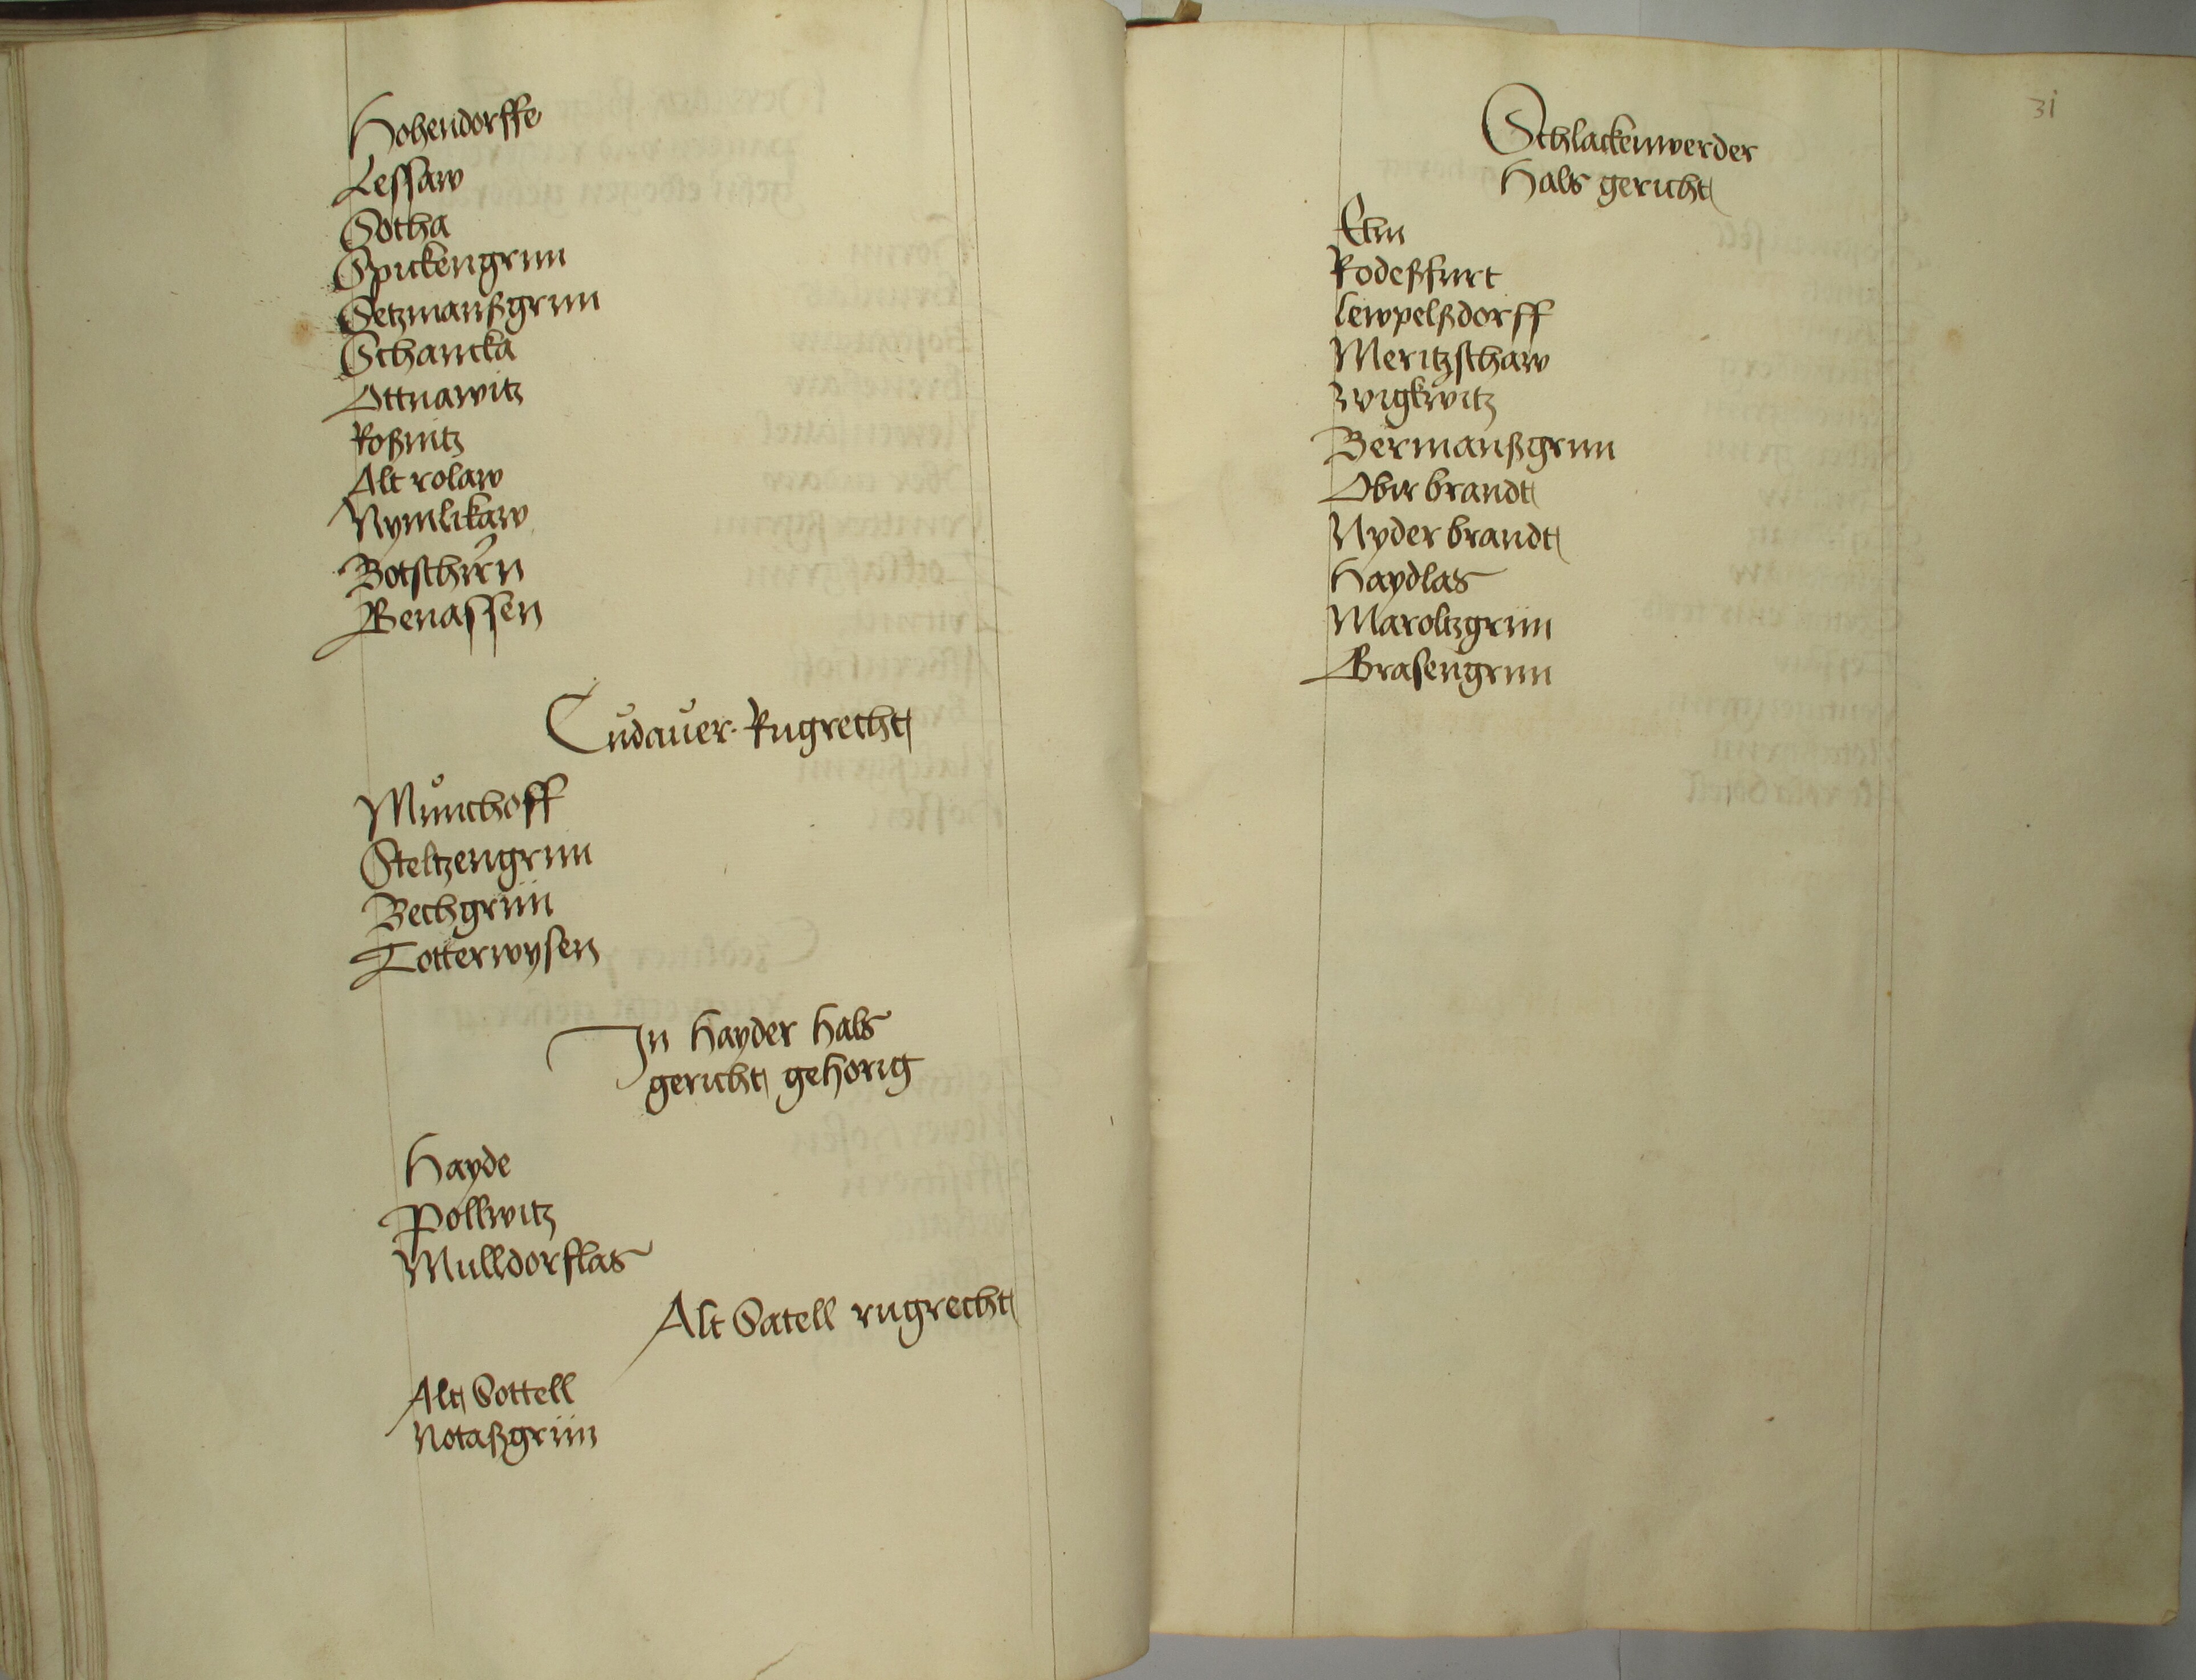 Hohendorffe
Lessaw
Sotha
Spickengrun
Setzmanßgrun
Schancka
Ottnawitz
Roßnitz
Alt rolaw
Nymlikaw
Botschirn
Benassen
Cudauer Rugrecht
Munchoff
Steltzengrun
Bechgrün
Totterwysen
In Hayder Hals
gericht gehorig
Hayde
Pollwitz
Mulldorflas
Alt Satell rugrecht
Alt Sottell
Notaßgrün
31
Schlackenwerder
Hals gericht
Elm
Rodeßfurt
Lewpelßdorff
Meritzschaw
Bermanßgrun
Obir brandt
Nyder brandt
Haydlas
Maroltzgrün
Grasengrun